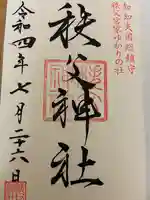 知知夫国総鎮守
秩父宮家ゆかりの社
秩父神社
令和四年七月二十六日